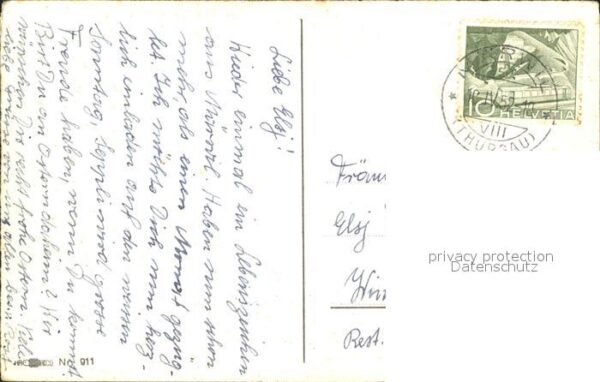 Liebe Elsj!
Wieder einmal ein Lebenszeichen
aus Märwil. Haben nun schon
mehr, als einen Monat gezüg-
let. Ich möchte Dich nun herz-
lich einladen auf den weissen
Sonntag, Seppli wird grosse
Freude haben, wenn Du kommst.
Bist Du an Ostern daheim? Wir
wünschen Dir recht frohe Ostern. Viele
liebe Grüsse von uns allen
No 911
10
HELVETIA
VIII
(THURGAU)
Elsj
Rest.
privacy protection
Datenschutz